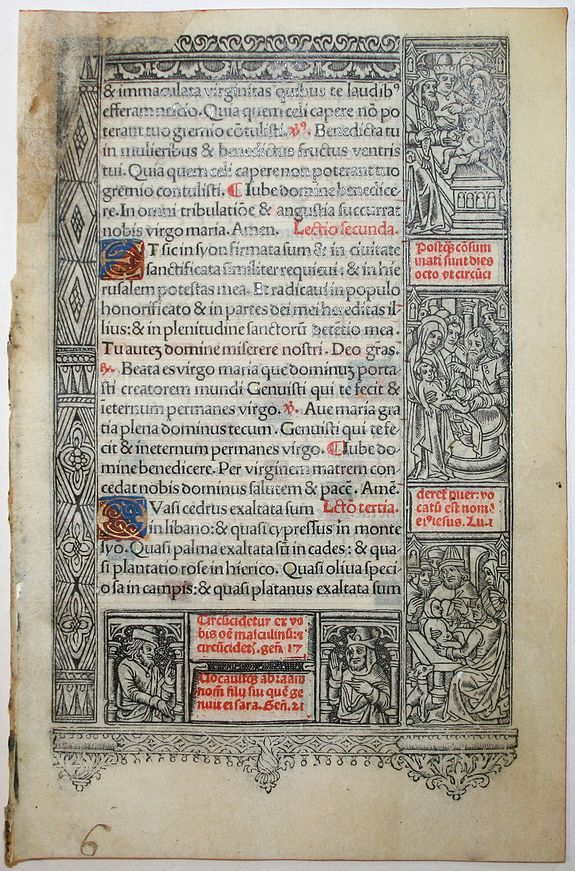 & immaculata virginitas quibus te laudibꝰ
efferam nescio. Quia quem celi capere nō po
terant tuo gremio cōtulisti. ꝟꝰ. Benedicta tu
in mulieribus & benedictus fructus ventris
tui. Quia quem celi capere non poterant tuo
gremio contulisti. ¶ Iube domine benedice
re. In omni tribulatiōe & angustia succurrat
nobis virgo maria. Amen. Lectio secunda.
ET sic in syon firmata sum & in ciuitate
sanctificata similiter requieui: & in hie
rusalem potestas mea. Et radicaui in populo
honorificato & in partes dei mei hereditas il-
lius: & in plenitudine sanctorū detētio mea.
Tu autez domine miserere nostri. Deo gras.
℟. Beata es virgo maria que dominuz porta
sti creatorem mundi Genuisti qui te fecit &
ineternum permanes virgo. ꝟ. Aue maria gra
tia plena dominus tecum. Genuisti qui te fe
cit & ineternum permanes virgo. ¶ Iube do-
mine benedicere. Per virginem matrem con
cedat nobis dominus salutem & pacē. Amē.
QVasi cedrus exaltata sum Lectō tertia.
in libano: & quasi cypressus in monte
syo. Quasi palma exaltata sū in cades: & qua
si plantatio rose in hierico. Quasi oliua speci
osa in campis: & quasi platanus exaltata sum
Postq̄ȝ cōsum
mati sunt dies
octo vt circūci
deret̄ puer: vo
catū est nomē
eiꝰ iesus. Lu. i
Circūcidetur ex vo
bis oē masculinū: ⁊
circūcidetꝭ. gen̄ 17
Uocauitqȝ abraam
nom̄ filij sui quē ge
nuit ei sara. Gen̄. 21
6